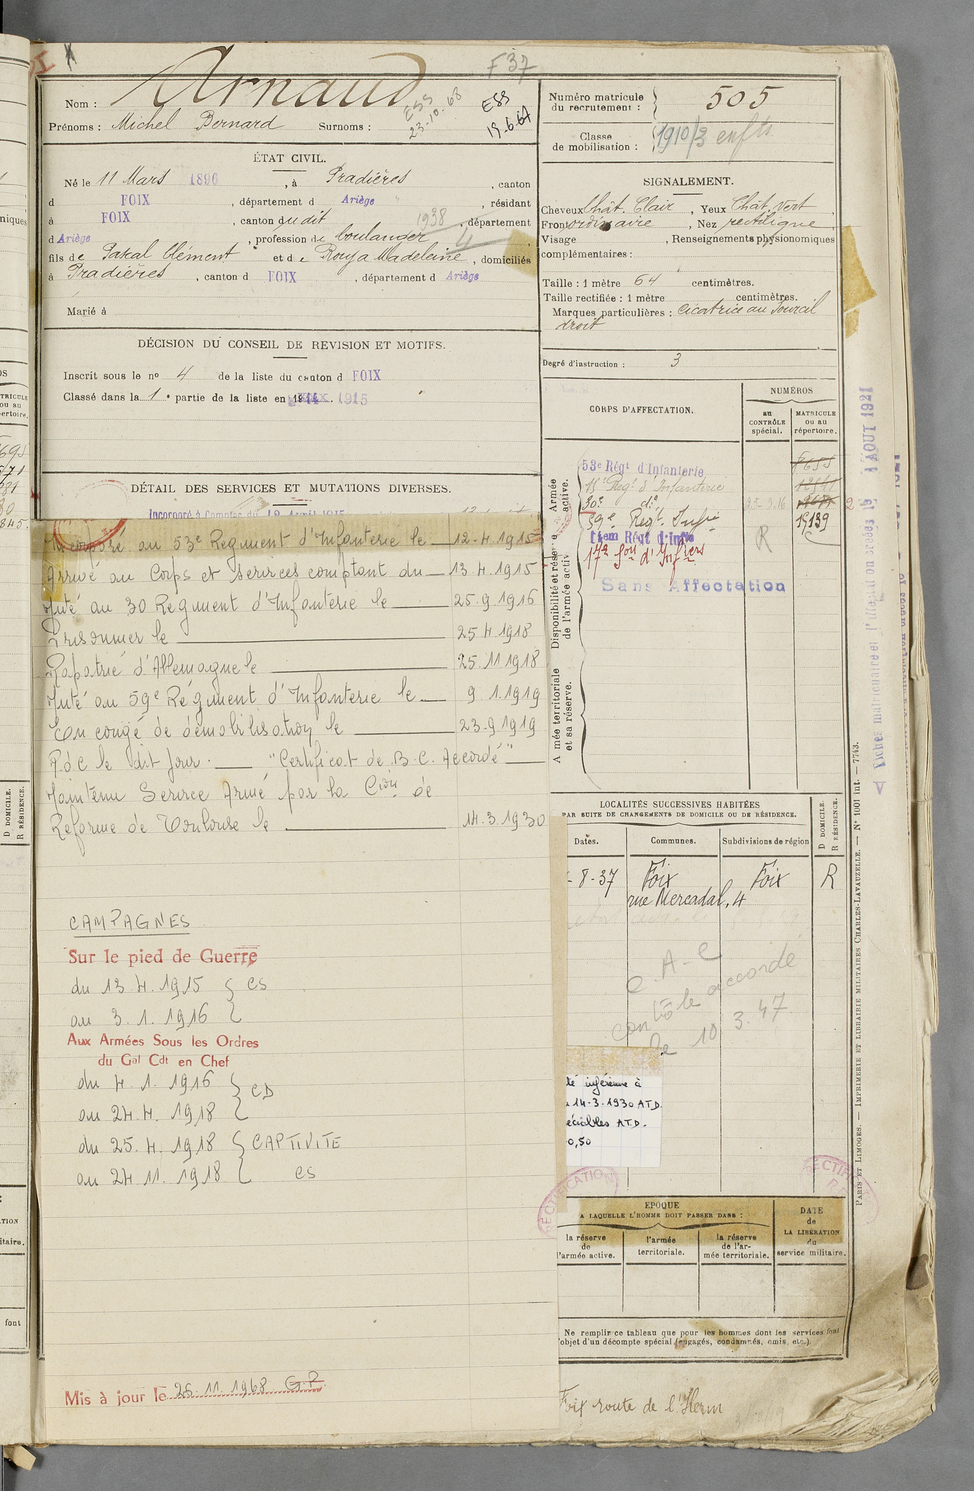 F 37
Nom : Arnaud
ESS
23-10-68
ESS
19.6.67
Prénoms : Michel Bernard Surnoms :
ÉTAT CIVIL.
Né le 11 Mars 1896, à Pradières, canton
d FOIX, département d Ariège, résidant
à FOIX, canton du dit 1938, département
d Ariège, profession de boulanger
fils de Pascal Clément et de Rouja Madeleine, domiciliés
à Pradières, canton d FOIX, département d Ariège
Marié à
DÉCISION DU CONSEIL DE REVISION ET MOTIFS.
Inscrit sous le no 4 de la liste du canton d FOIX
Classé dans la 1e partie de la liste en 1915
DÉTAIL DES SERVICES ET MUTATIONS DIVERSES.
Incorporé à Compter du 12 Avril 1915
Incorporé au 53e Regiment d'Infanterie le 12-4-1915
Arrivé au Corps et services comptant du 13.4.1915
Muté au 30 Regiment d'Infanterie le 25.9.1916
Prisonnier le 25.4.1918
Rapatrié d'Allemagne le 25.11.1918
Muté au 59e Régiment d'Infanterie le 9.1.1919
En congé de démobilisation le 23.9.1919
R.d.c le dit jour. "Certificat de B.C. Accordé"
Maintenu Service Armé par la Cion de
Réforme de Toulouse le 14.3.1930
CAMPAGNES
Sur le pied de Guerre
du 13.4.1915 } CS
au 3.1.1916
Aux Armées Sous les Ordres
du Gal Cdt en Chef
du 4.1.1916 } CD
au 24.4.1918
du 25.4.1918 } CAPTIVITE
au 24.11.1918 CS
Mis à jour le 26.11.1968 G.P.
Numéro matricule
du recrutement : 505
Classe
de mobilisation : 1910/3 enfts
SIGNALEMENT.
Cheveux Chât. Clair, Yeux Chât. vert
Front ordinaire, Nez rectiligne
Visage , Renseignements physionomiques
complémentaires :
Taille : 1 mètre 64 centimètres.
Taille rectifiée : 1 mètre centimètres.
Marques particulières : cicatrice au sourcil
droit
Degré d'instruction : 3
CORPS D'AFFECTATION.
NUMÉROS
au
CONTRÔLE
spécial.
MATRICULE
ou au
répertoire.
Disponibilité et réserve
de l'armée active.
Armée
active.
53e Régt d'Infanterie
Regt d'Infanterie
30e do
59e Regt. Infie
Régt d'Infie
17e Son d'Infiers
Sans Affectation
R
19139
Armée territoriale
et sa réserve.
LOCALITÉS SUCCESSIVES HABITÉES
PAR SUITE DE CHANGEMENTS DE DOMICILE OU DE RÉSIDENCE.
Dates.
Communes.
Subdivisions de région
D DOMICILE.
R RÉSIDENCE.
-8-37 Foix Foix R
rue Mercadal, 4
C.A.C
contrôle accordé
le 10.3.47
té inférieure à
14-3-1930 A.T.D.
éciables A.T.D.
0,50
RECTIFICATION
EPOQUE
A LAQUELLE L'HOMME DOIT PASSER DANS :
DATE
de
LA LIBÉRATION
du
service militaire.
la réserve
de
l'armée active.
l'armée
territoriale.
la réserve
de l'ar-
mée territoriale.
Ne remplir ce tableau que pour les hommes dont les services font
l'objet d'un décompte spécial (engagés, condamnés, omis, etc.).
Foix route de l'Herm
PARIS ET LIMOGES. — IMPRIMERIE ET LIBRAIRIE MILITAIRES CHARLES-LAVAUZELLE. — No 1001 int. — 7743.
AOUT 1921